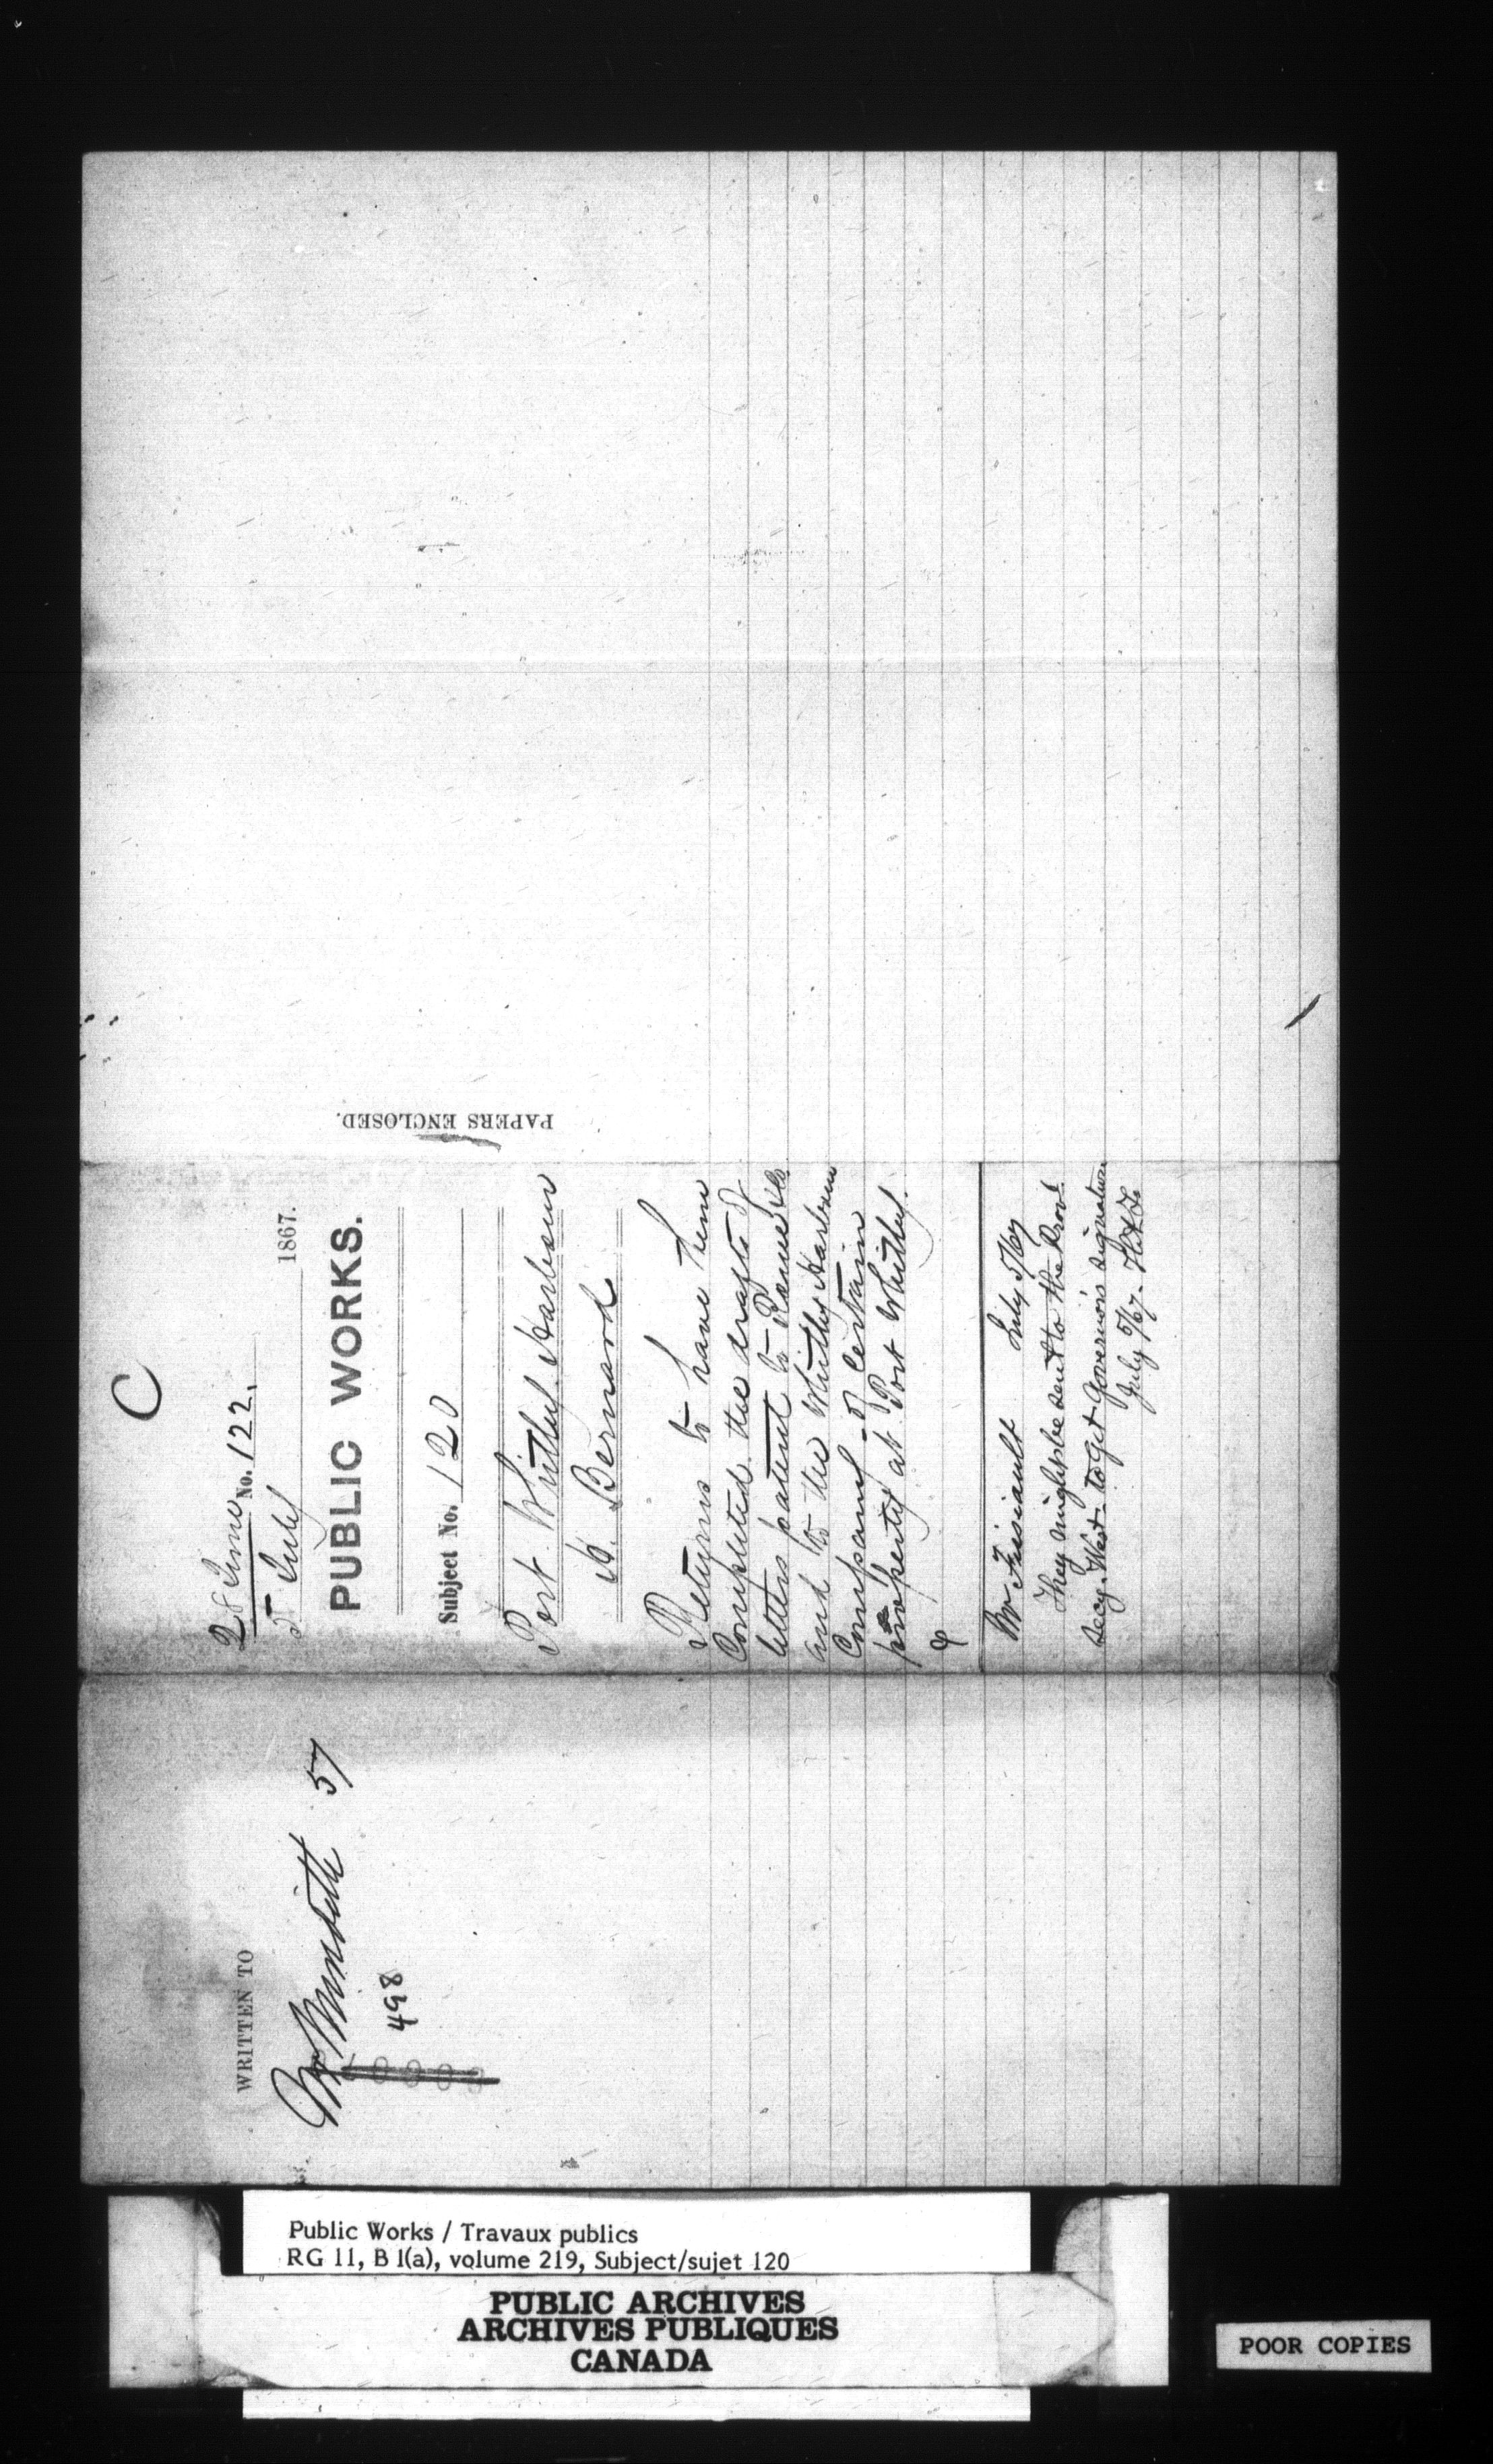 C
28 June No. 122.
5 July 1867.
PUBLIC WORKS.
Subject No. 120
Port Whitby Harbour
H. Bernard
Returns to have them
Completed the drafts of
letters patent to
and to the Whitby Harbour
Company - of certain
property at Port Whitby.
Mr July 5/67
They might be sent to the Prov.l
Secy. West. to get Governor's signature
July 5/67.
PAPERS ENCLOSED.
WRITTEN TO
Mr Meredith 5/7
498
Public Works / Travaux publics
RG 11, B 1(a), volume 219, Subject/sujet 120
PUBLIC ARCHIVES
ARCHIVES PUBLIQUES
CANADA
POOR COPIES